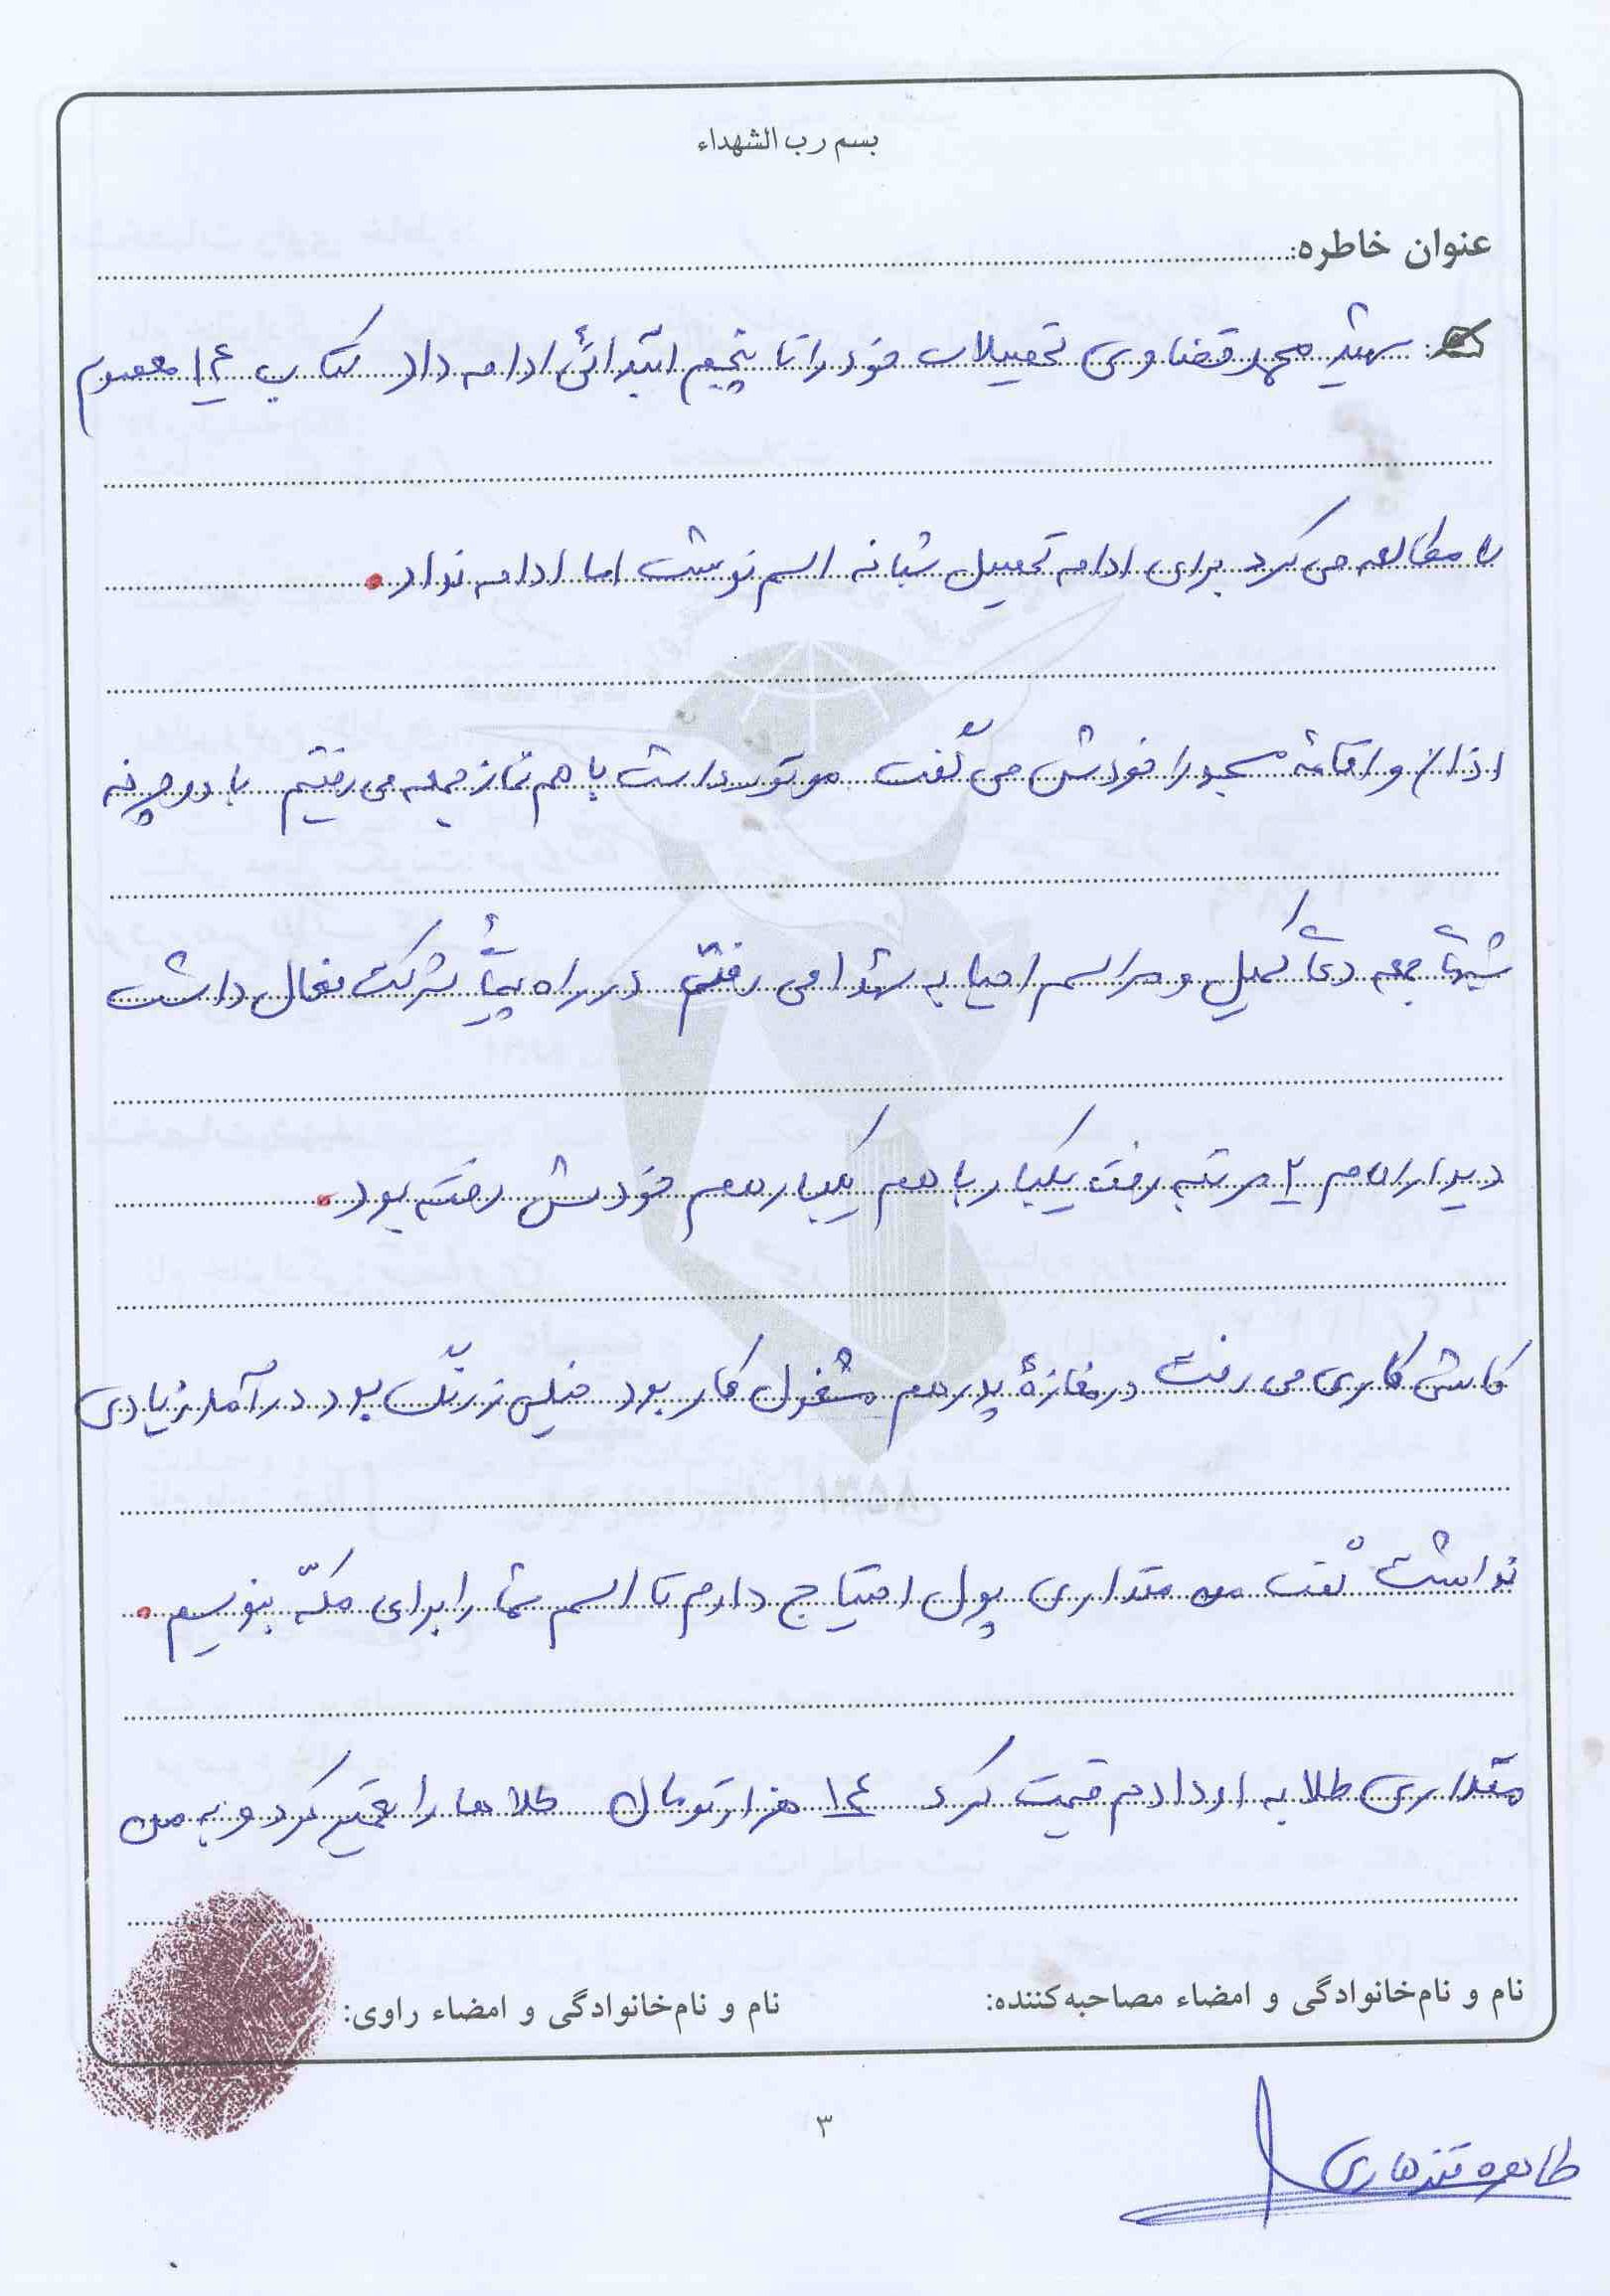 بسم رب الشهداء
عنوان خاطره:
شهید محمد قضاوی تحصیلات خود را تا پنجم ابتدائی ادامه داد کتاب ۱۴ معصوم
را مطالعه می کرد برای ادامه تحصیل شبانه اسم نوشت اما ادامه نداد.
اذان و اقامهٔ مسجد را خودش می گفت موتور داشت با هم نماز جمعه می رفتیم با دوچرخه
شبهای جمعه دعای کمیل و مراسم احیا به شهدا می رفتیم در راه پیمائی شرکت فعال داشت
دیدار امام ۲ مرتبه رفت یکبار با هم یکبار هم خودش رفته بود.
کاشی کاری می رفت در مغازهٔ پدر هم مشغول کار بود خیلی زرنگ بود درآمد زیادی
نداشت گفت من مقداری پول احتیاج دارم تا اسم شما را برای مکّه بنویسم.
مقداری طلا به او دادم قیمت کرد ۱۴ هزار تومان طلا ها را قیمت کرد و به من
نام و نام‌خانوادگی و امضاء مصاحبه‌کننده:
نام و نام‌خانوادگی و امضاء راوی:
طاهره قندهاری
۳